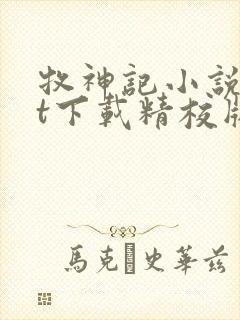 牧神記小説
t下載精校版
馬克 史華茲